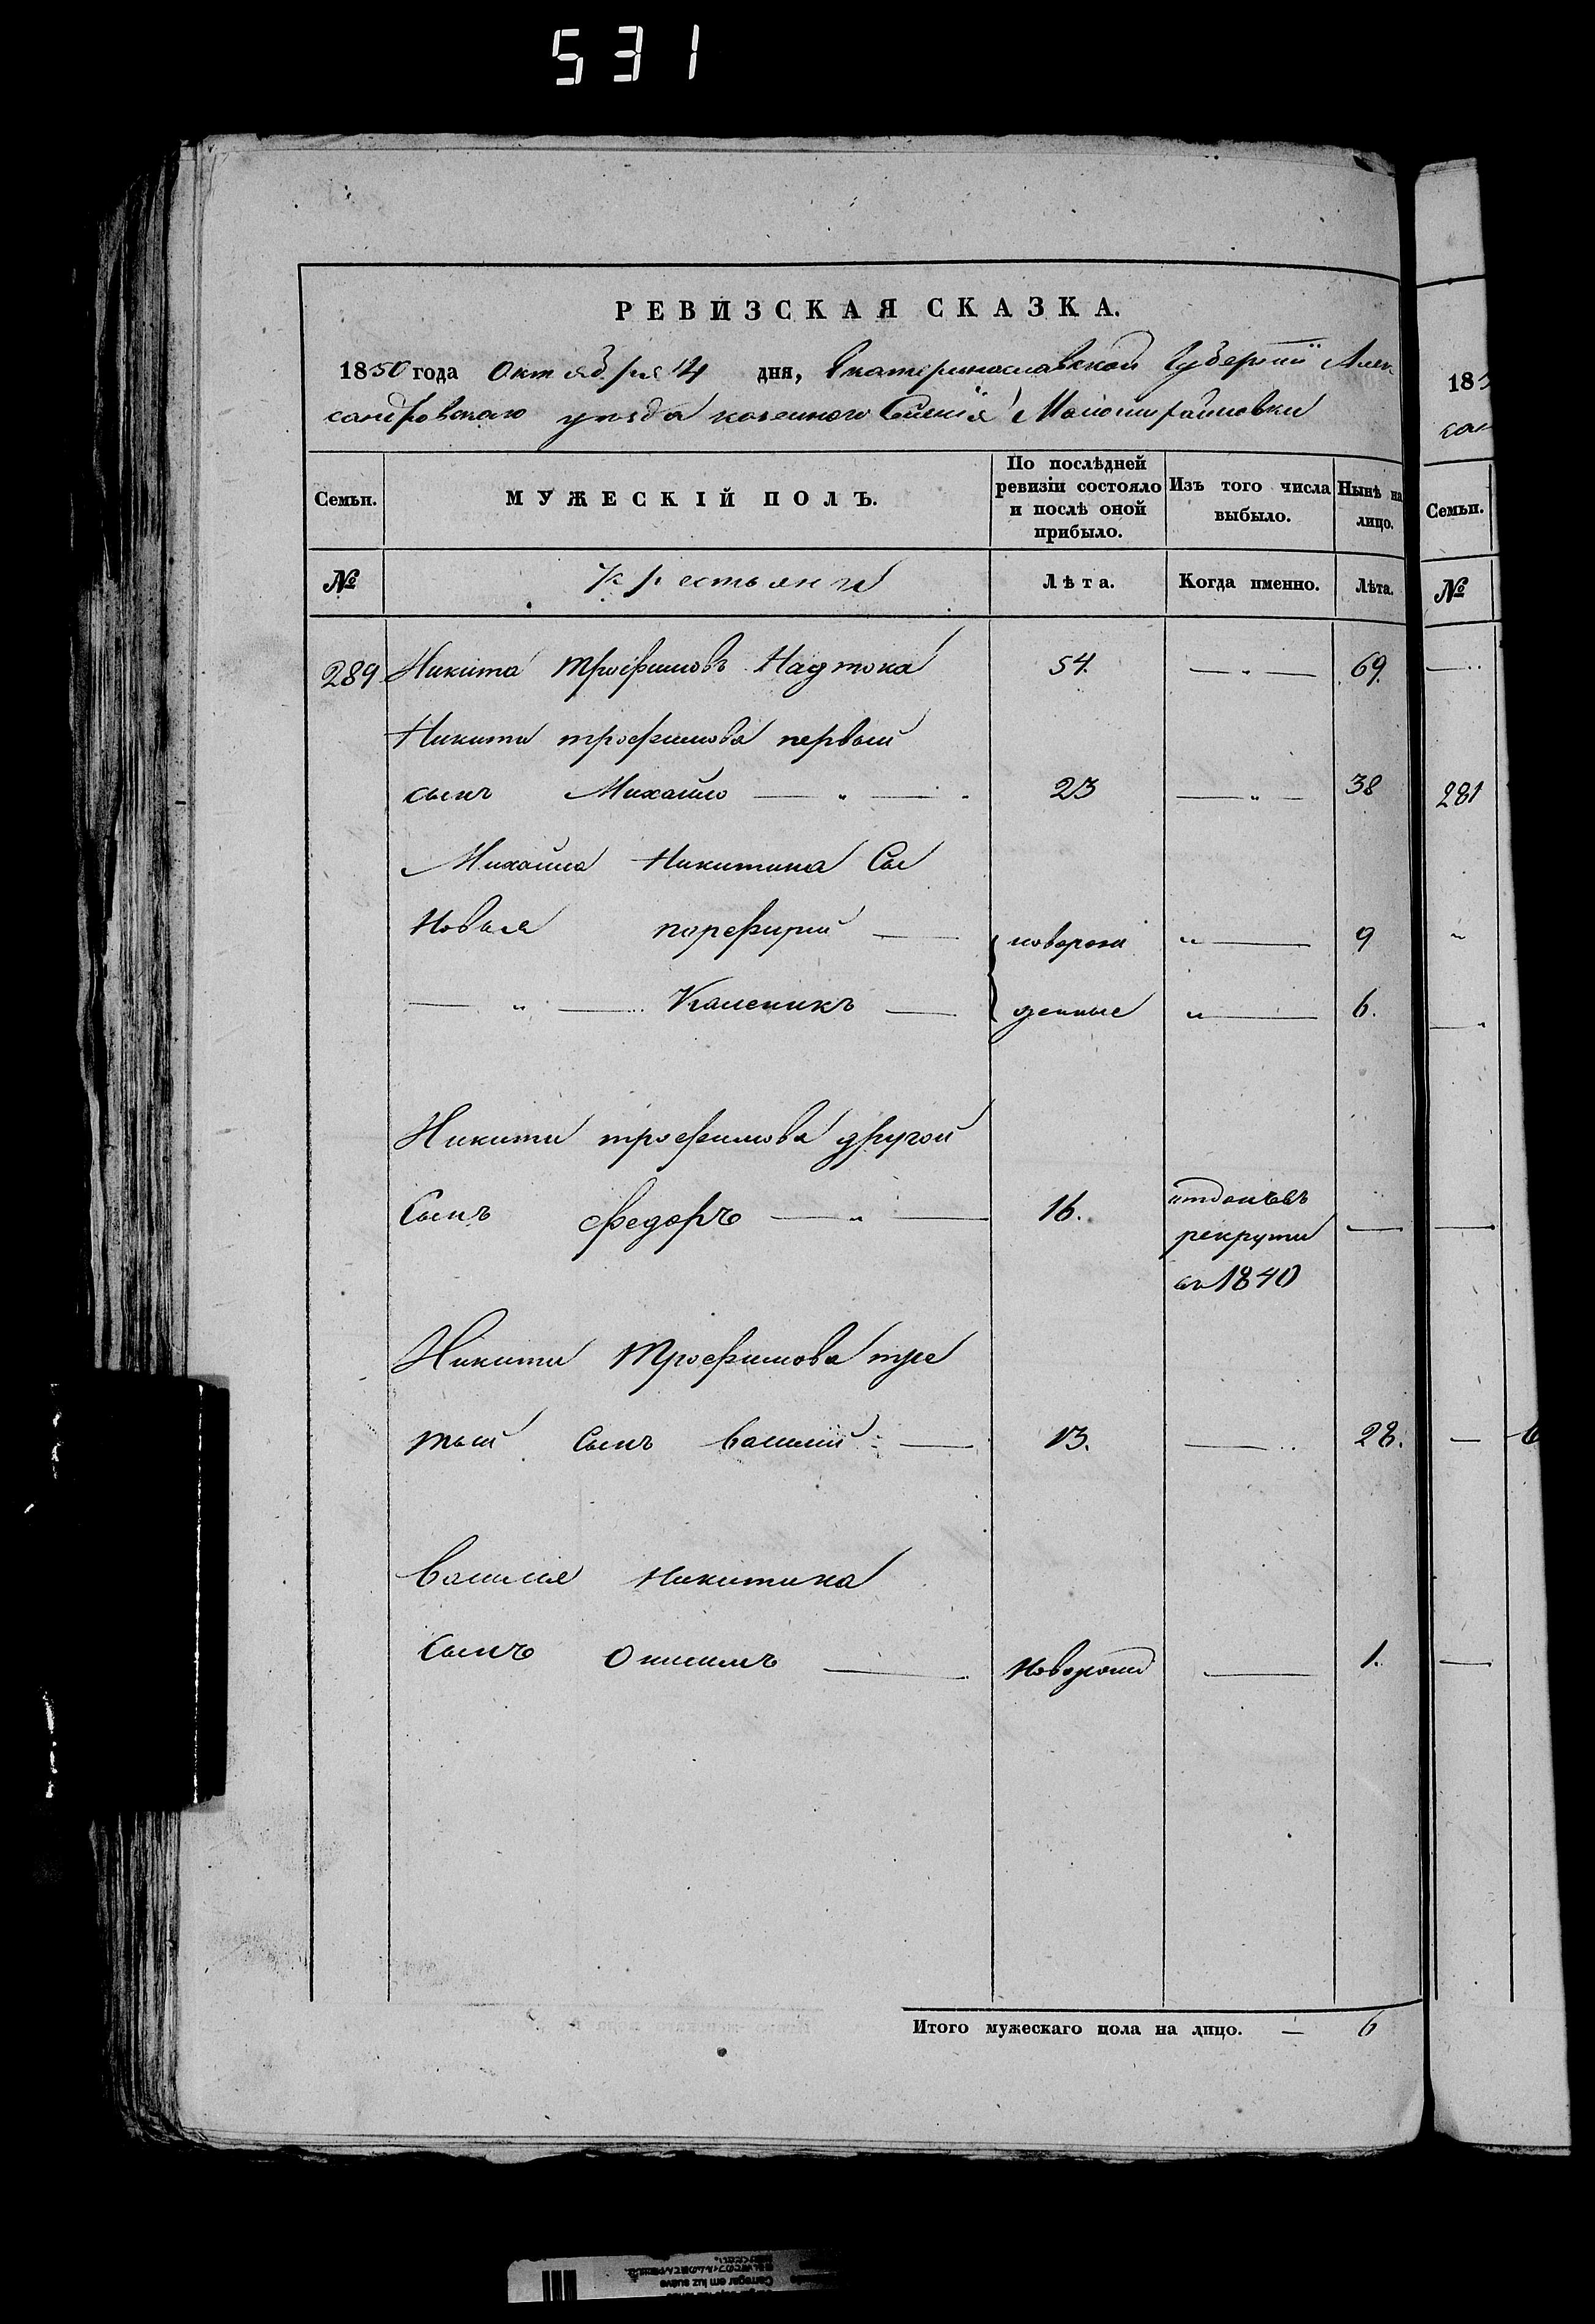 531
РЕВИЗСКАЯ СКАЗКА.
1850 года Октября 14 дня, Екатеринославской Губернии Алек
сандровского уезда казенного Селенія Малошрайшовки
Семьи.
МУЖЕСКІЙ ПОЛЪ.
По послѣдней ревизіи состояло и послѣ оной прибыло.
Изъ того числа выбыло.
Нынѣ на лицо.
№
Крестьяни
Лѣта.
Когда именно.
Лѣта.
289 Никита Трофимовъ Надтока 54. — " — 69.
Никити трофимова первый
сынъ Михайло — " — 23 — " — 38
Михайла Никитина Сы
новья порфирий — новорож " — 9
— " — Каленикъ — денные " — 6.
Никити трофимова другой
Сынъ федоръ — " — 16. отданъ въ —
рекрути
въ 1840
Никити Трофимова тре
тый Сынъ Василий — 13. — 28.
Василия Никитина
Сынъ Онисимъ — Новорожд — 1.
Итого мужескаго пола на лицо. — 6
185
сан
Семьи.
№
281